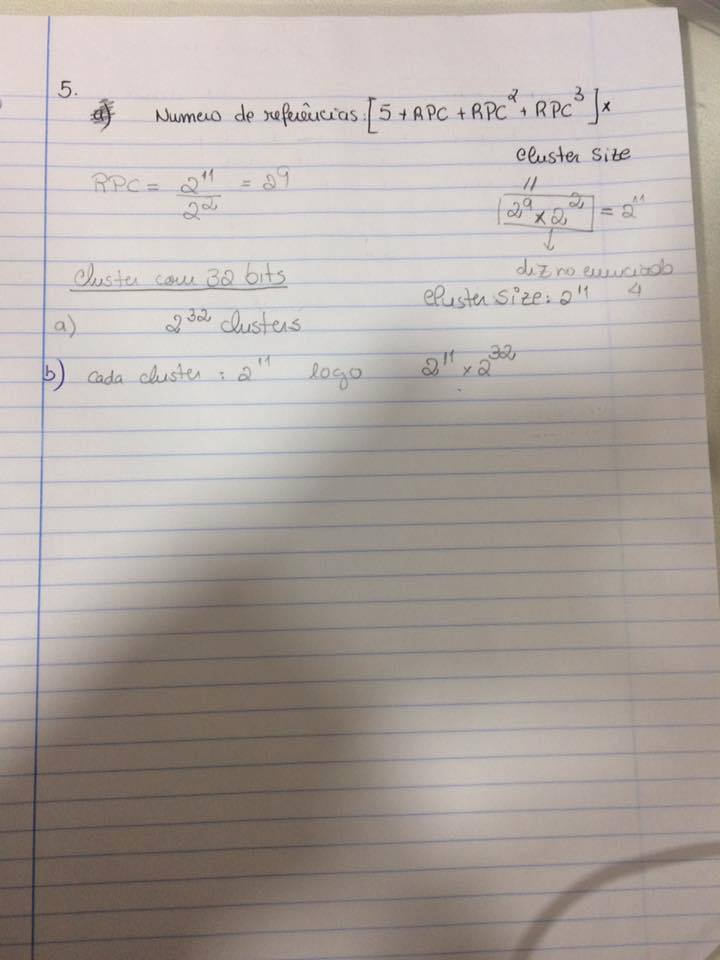 5.
a) Numero de referências: [5 + RPC + RPC² + RPC³] ×
cluster size
RPC = 2¹¹ / 2² = 2⁹
||
2⁹ × 2² = 2¹¹
↓
diz no enunciado
Cluster com 32 bits
cluster size: 2¹¹ 4
a) 2³² clusters
b) cada cluster : 2¹¹ logo 2¹¹ × 2³²